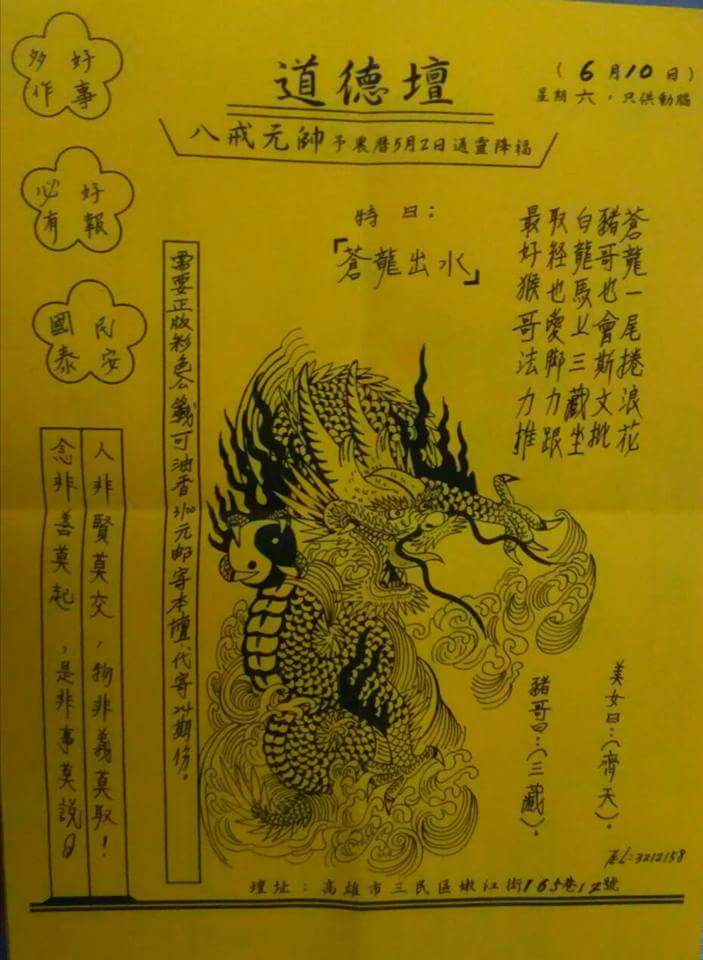 道德壇
(6月10日)
星期六，只供動腦
八戒元帥予農曆5月2日通靈降福
好事
多作
好報
必有
民安
國泰
特曰：
「蒼龍出水」
蒼龍一尾捲浪花
豬哥也會斯文批
白龍馬上三藏坐
取経也愛脚力跟
最好猴哥法力推
需要正版彩色公籤可油香3100元邮寄本壇代寄24期份。
人非賢莫交，物非義莫取！
念非善莫起，是非事莫說曰
美女曰：(齊天)。
豬哥曰：(三藏)。
TEL:3212158
壇址：高雄市三民區嫩江街165巷12號